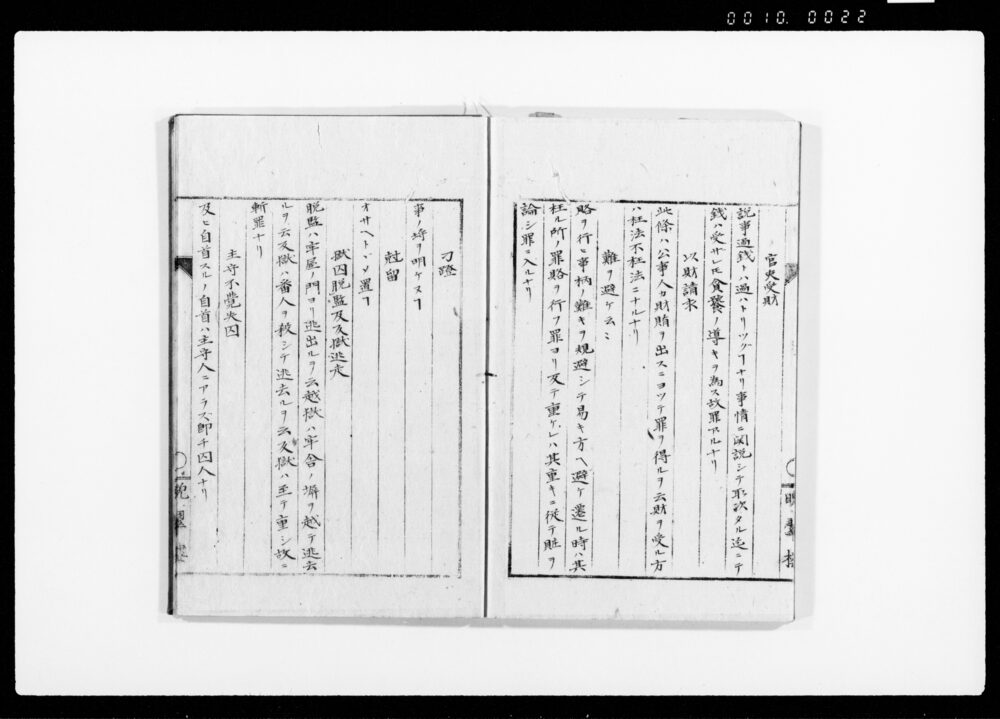 0010. 0022
官吏受財
説事過銭トハ過ハトリツグヿナリ事情ニ関説シテ取次タル迄ニテ
銭ハ受サレヒ貪饕ノ導キヲ為ス故罪アルナリ
以財請求
此條ハ公事人カ財賄ヲ出スニヨツテ罪ヲ得ルヲ云財ヲ受ル方
ハ枉法不枉法ニナルナリ
難ヲ避ケ云ミ
賂ヲ行ヒ事柄ノ難キヲ規避シテ易キ方ヘ避ケ遷ル時ハ其
枉ル所ノ罪賂ヲ行フ罪ヨリ反テ重ケレハ其重キニ従テ賍ヲ
論シ罪ニ入ルナリ
刁蹬
事ノ埒ヲ明ケヌヿ
尅留
オサヘトヾメ置ヿ
獄囚脱監及反獄逃走
脱監ハ牢屋ノ門ヨリ逃出ルヲ云越獄ハ牢舎ノ塀ヲ越テ逃去
ルヲ云反獄ハ番人ヲ殺シテ逃去ルヲ云反獄ハ至テ重シ故ニ
斬罪ナリ
主守不覺失囚
及ヒ自首スルノ自首ハ主守人ニアラズ即チ囚人ナリ